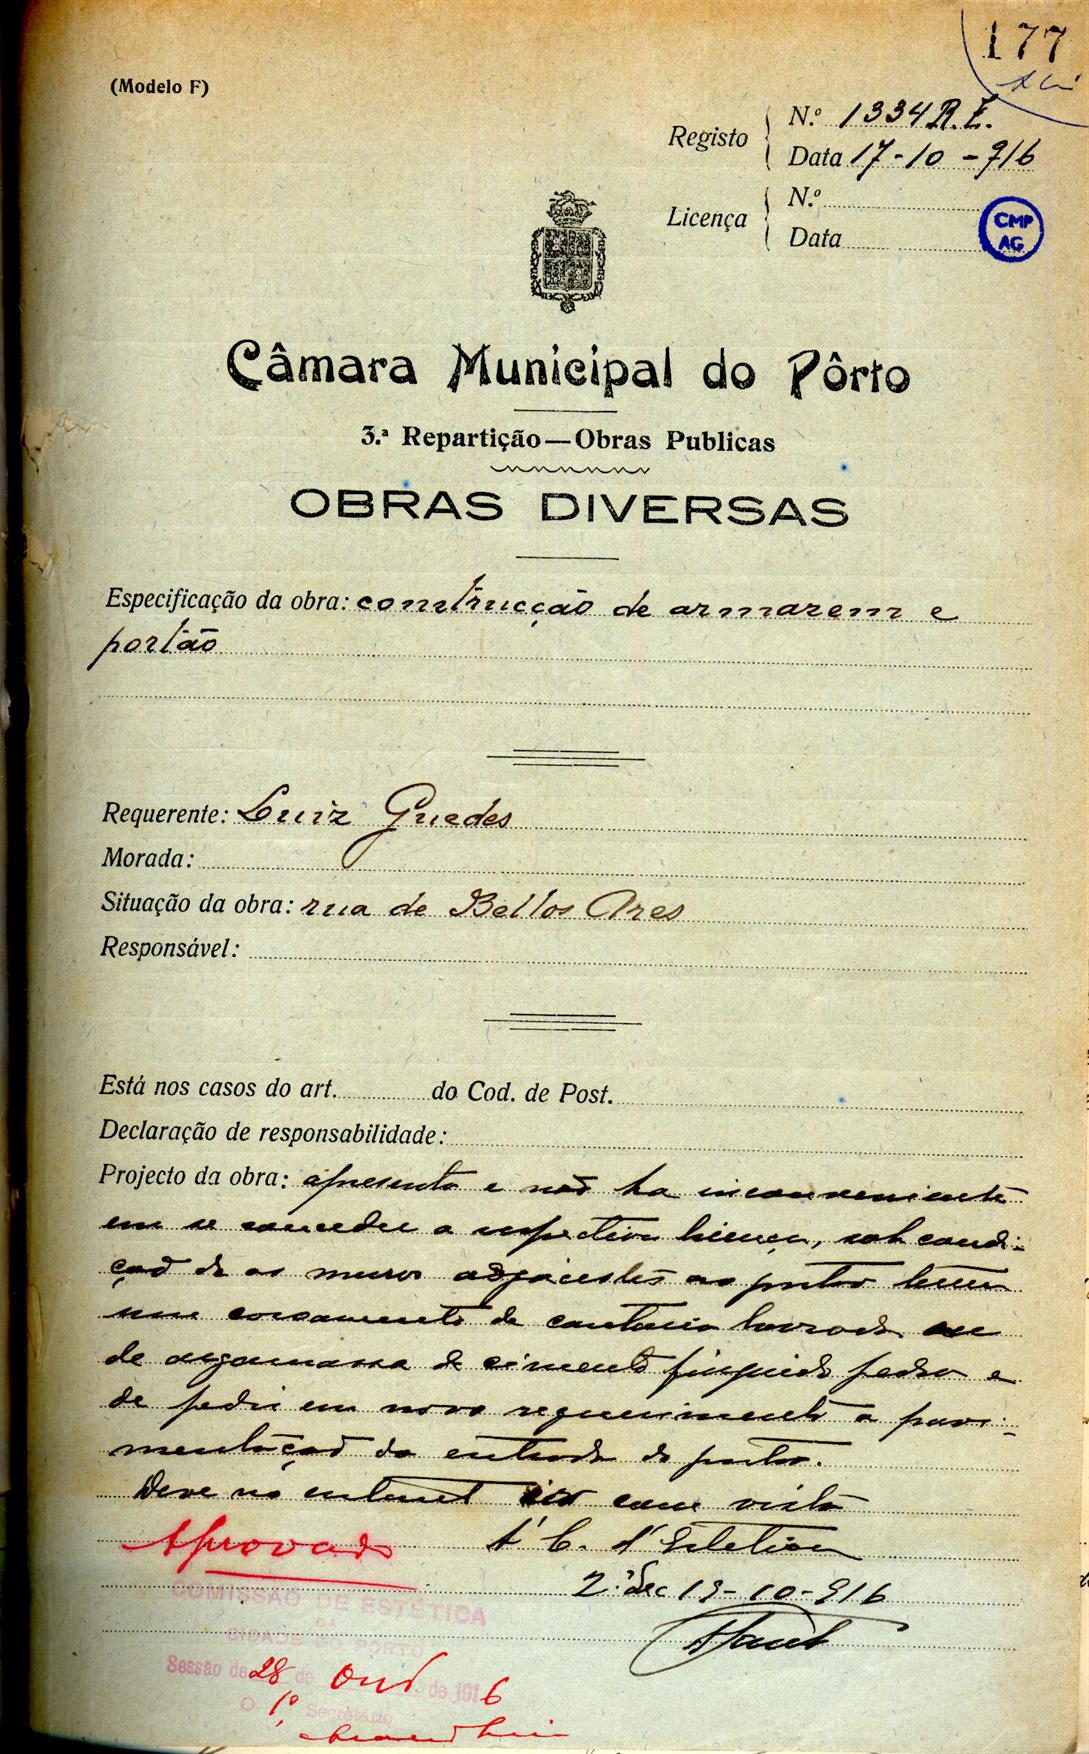 177
(Modelo F)
Registo
N.º 1334 R.E.
Data 17-10-916
Licença
N.º
Data
CMP
AG
Câmara Municipal do Pôrto
3.ª Repartição—Obras Publicas
OBRAS DIVERSAS
Especificação da obra: construcção de armarem e
portão
Requerente: Luiz Guedes
Morada:
Situação da obra: rua de Bellos Ares
Responsável:
Está nos casos do art. do Cod. de Post.
Declaração de responsabilidade:
Projecto da obra: apresenta e não ha inconveniente
em se conceder a respectiva licença, sob condi-
ção de os muros adjacentes ao portão terem
um coroamento de cantaria lavrada ou
de argamassa de cimento fingindo pedra e
de pedir em novo requerimento a pavi-
mentação da entrada do portão.
Deve no entanto ir com vista
Aprovado á C. d'Estetica
2.ª Sec 19-10-916
COMISSÃO DE ESTÉTICA
DA
CIDADE DO PORTO
Sessão de 28 de Out de 1916
O 1º Secretário